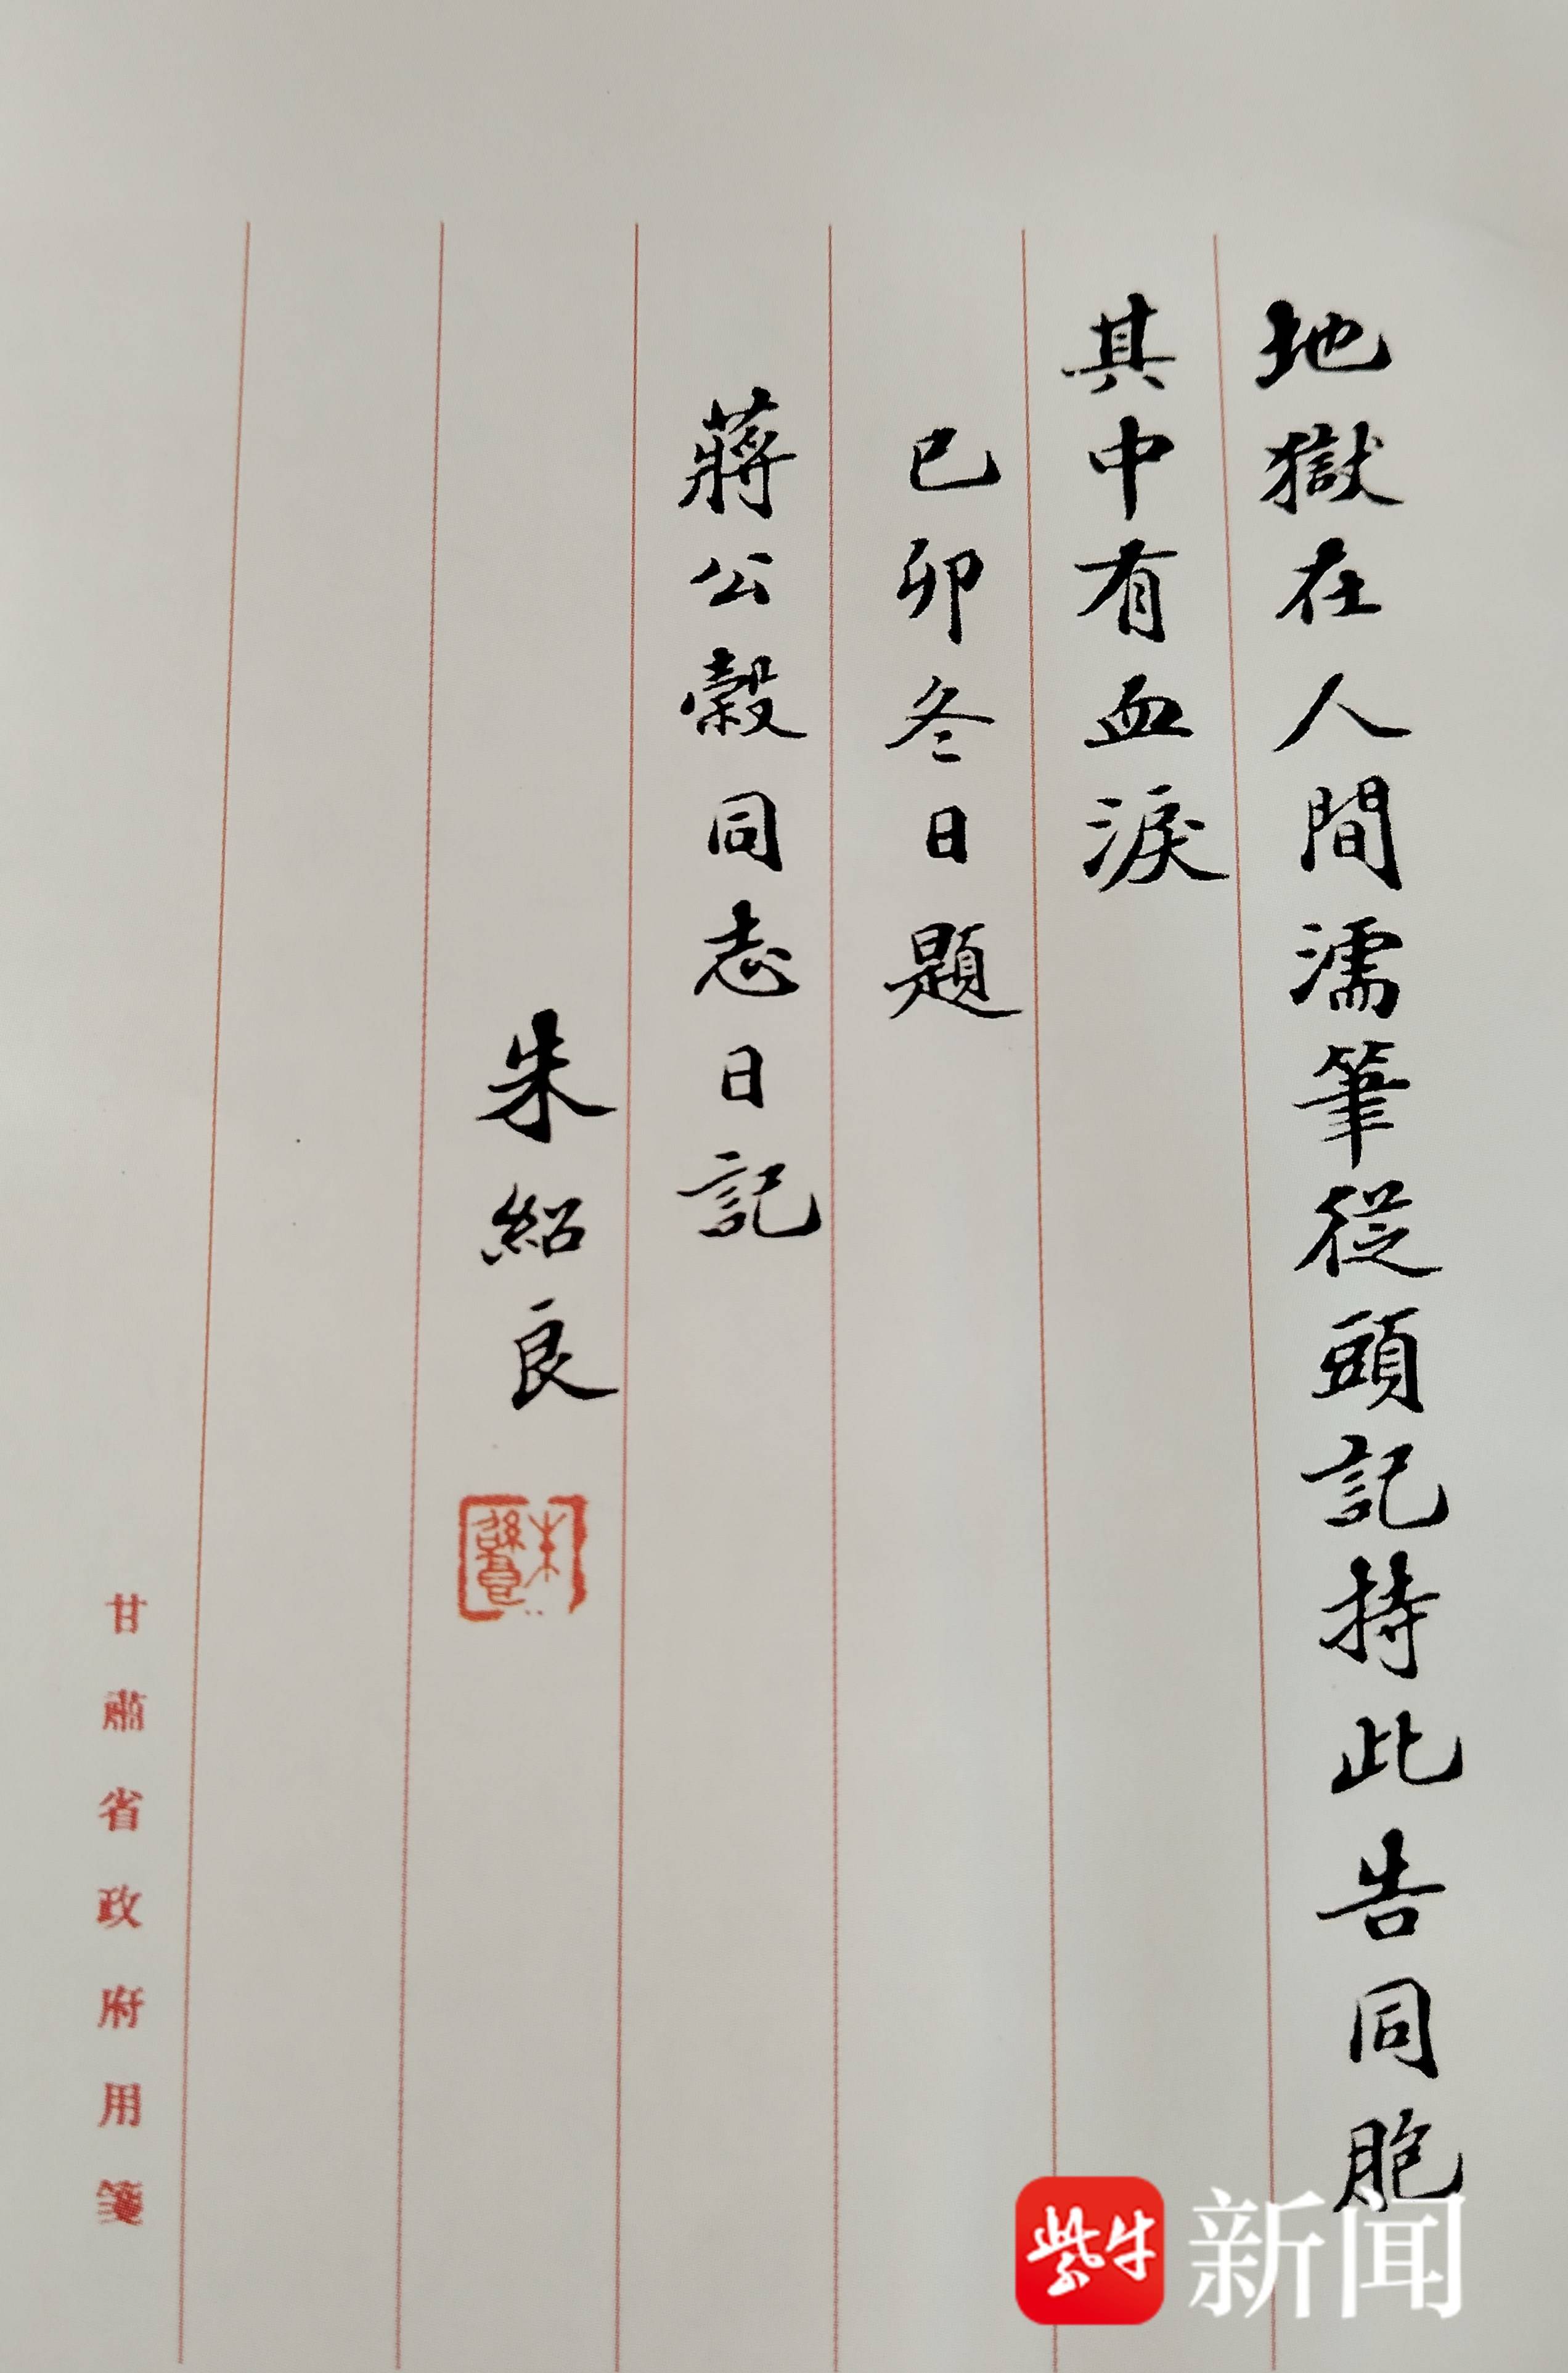 地獄在人間濡筆從頭記持此告同胞
其中有血淚
己卯冬日題
蔣公穀同志日記
朱紹良
朱紹良
甘肅省政府用箋
紫牛新闻